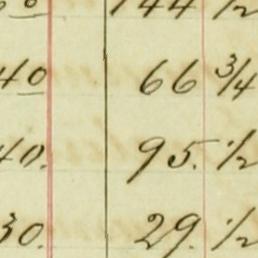 144 1/2
40 66 3/4
40. 95. 1/2
30. 29. 1/2